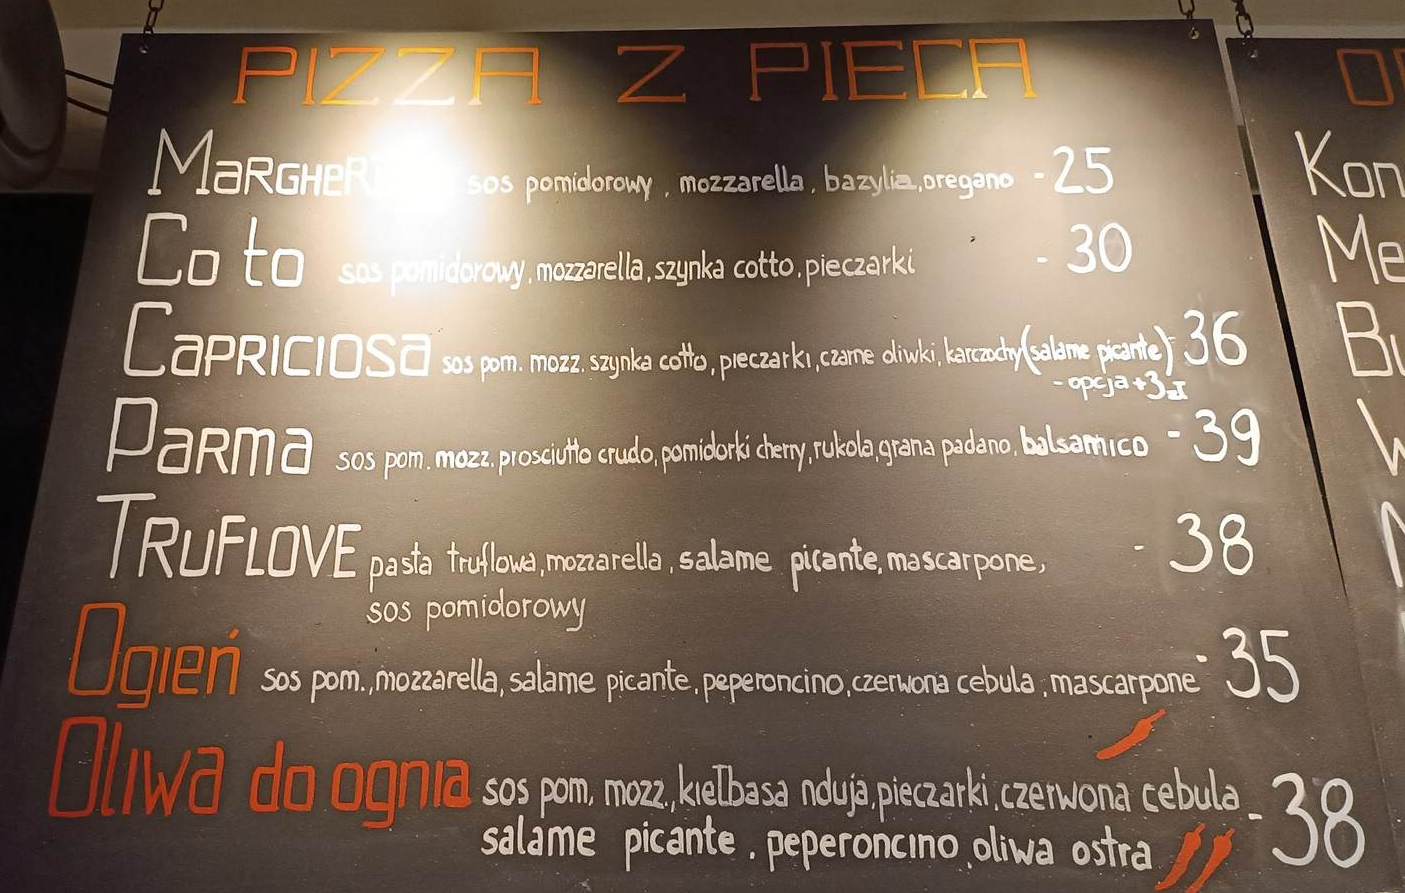 PIZZA Z PIECA
MaRGHeR sos pomidorowy, mozzarella, bazylia, oregano - 25
Co to sos pomidorowy, mozzarella, szynka cotto, pieczarki - 30
CaPRICIOSa sos pom. mozz. szynka cotto, pieczarki, czarne oliwki, karczochy (salame picante) 36
- opcja +3 zł
PaRma sos pom. mozz. prosciutto crudo, pomidorki cherry, rukola, grana padano, balsamico - 39
TRUFLOVE pasta truflowa, mozzarella, salame picante, mascarpone, - 38
sos pomidorowy
Ogień sos pom., mozzarella, salame picante, peperoncino, czerwona cebula, mascarpone - 35
Oliwa do ognia sos pom, mozz., kiełbasa nduja, pieczarki, czerwona cebula - 38
salame picante, peperoncino, oliwa ostra
Kon
Me